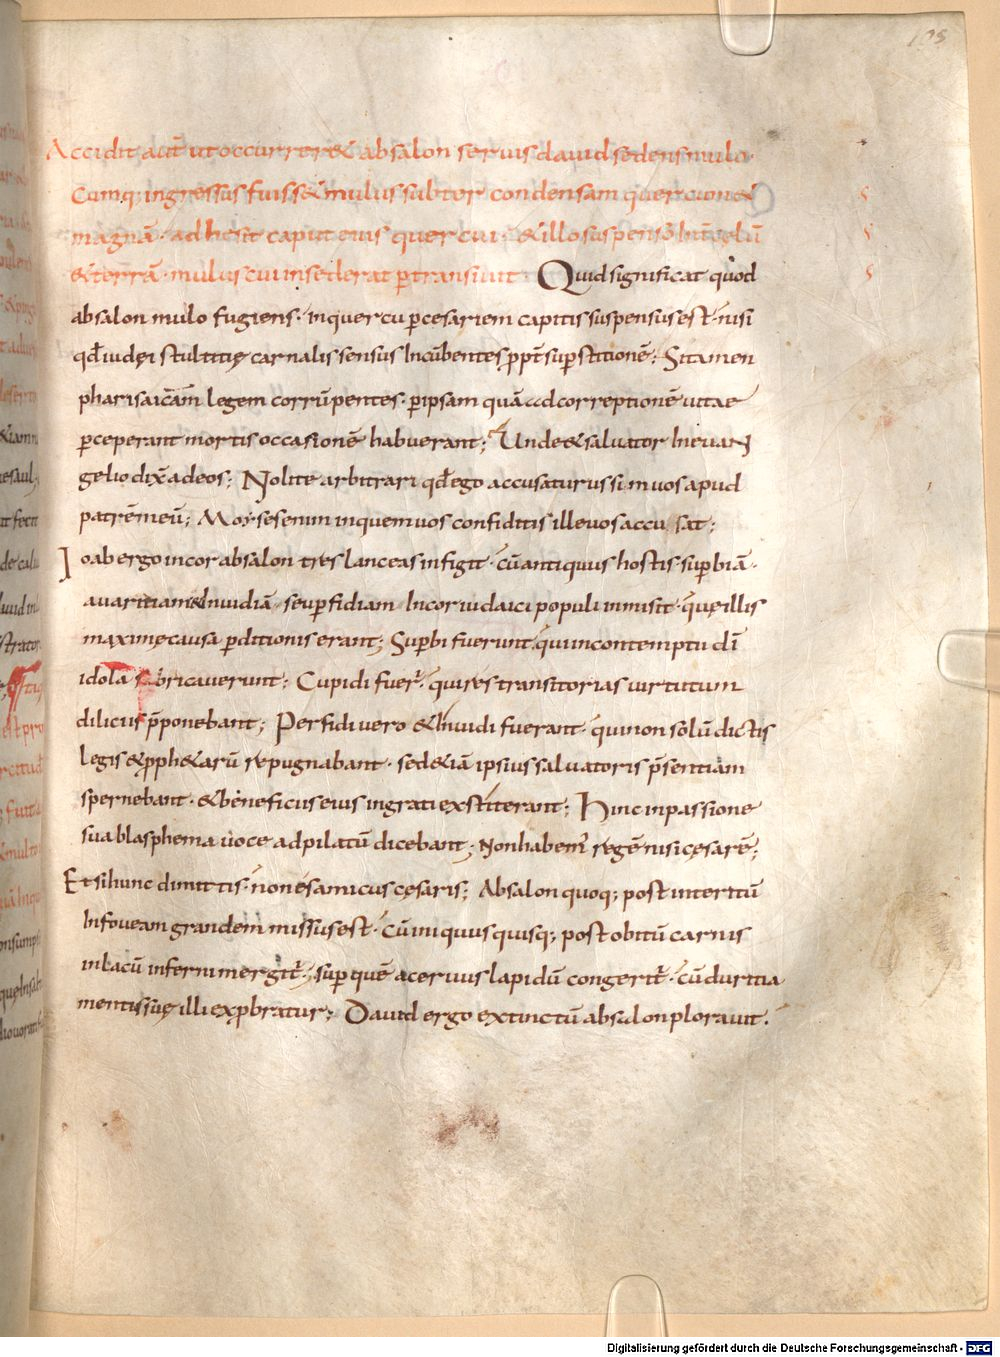 105
Accidit aut̄ ut occurrer& absalon seruis dauid sedens mulo.
Cumq; ingressus fuiss& mulus subtor condensam quercum &
magnā. adhesit caput eius quercui. & illo suspenso int̄ celū
& terrā. mulus cui insederat ꝑtransiuit. Quid significat quod
absalon mulo fugiens. in quercu ꝑ cesariem capitis suspensus est. nisi
qđ iudęi stultitię carnalis sensus incūbentes ꝓpt̄ suꝑstitionē; Si tamen
pharisaicām legem corrūpentes. ꝑ ipsam quā ad correptionē uitae
ꝑceperant mortis occasionē habuerant; Unde & saluator in euan
gelio dix̄ ad eos; Nolite arbitrari qđ ego accusaturus sim uos apud
patrē meū; Moyses enim in quem uos confiditis ille uos accusat;
Ioab ergo in cor absalon tres lanceas infigit. cū antiquus hostis. suꝑbiā.
auaritiam & inuidiā. seu ꝑfidiam in cor iudaici populi inmisit. quę illis
maximę causa ꝑditionis erant; Suꝑbi fuerunt. qui in contemptu dī
idola fabricauerunt; Cupidi fuer̄. qui res transitorias uirtutum
diliciis p̄ponebant; Perfidi uero & inuidi fuerant. qui non solū dictis
legis & ꝓph&arū repugnabant. sed &iā ipsius saluatoris p̄sentiam
spernebant. & beneficus eius ingrati exstiterant; Hinc in passione
sua blasphema uoce ad pilatū dicebant; Non habem̄ regē nisi cęsarē;
Et si hunc dimittis. non es amicus cęsaris; Absalon quoq; post interitū
in foueam grandem missus est. Cū iniquus quisq; post obitū carnis
in lacū inferni mergit̄. suꝑ quē aceruus lapidū congerit̄. cū duritia
mentis suę illi exꝓbratur; Dauid ergo extinctū absalon plorauit.
Digitalisierung gefördert durch die Deutsche Forschungsgemeinschaft - DFG